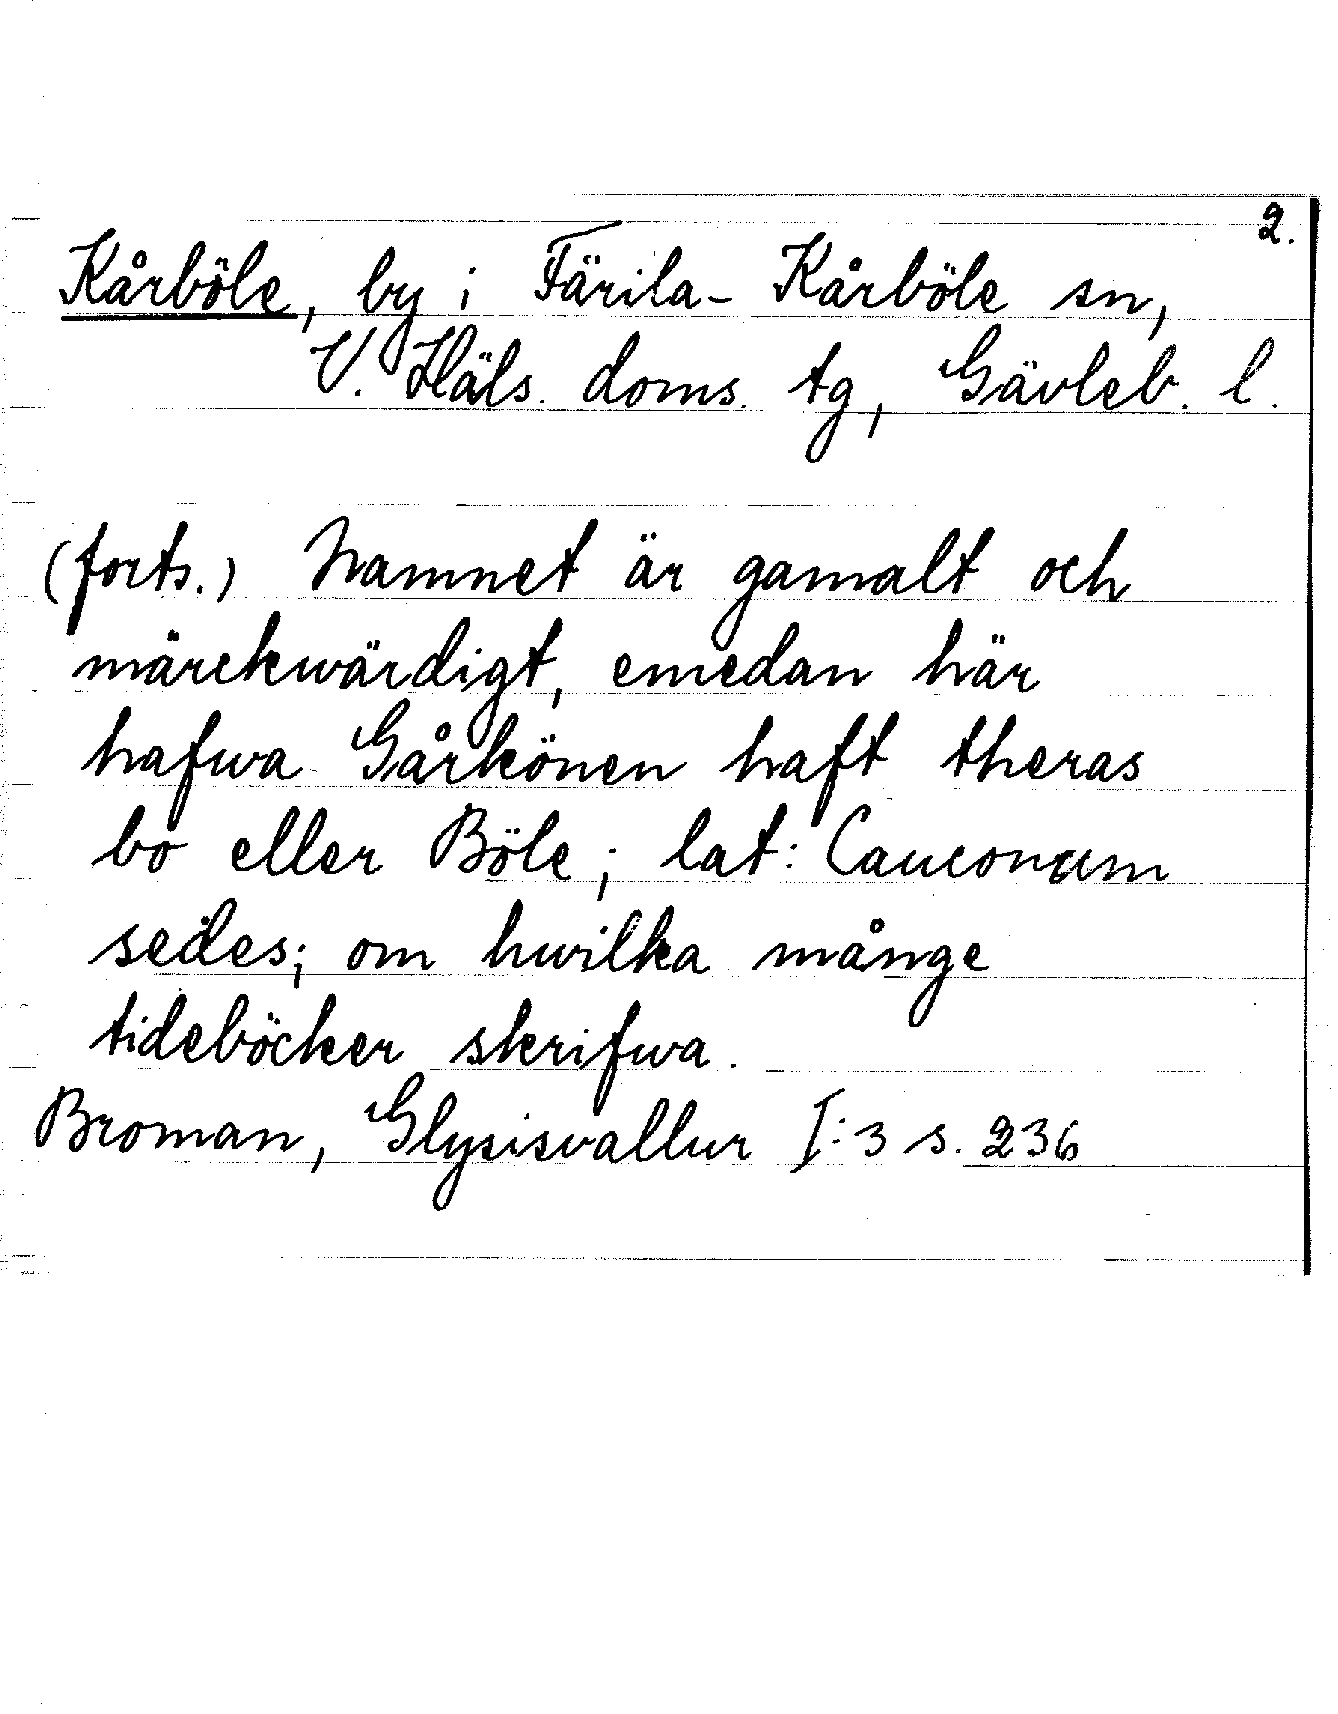 2.
Kårböle, by i Färila-Kårböle sn,
V. Häls. doms. tg, Gävleb. l.
(forts.) Namnet är gamalt och
märckwärdigt, emedan här
hafwa Gårkönen haft theras
bo eller Böle; lat: Cauconum
sedes; om hwilka månge
tideböcker skrifwa.
Broman, Glysisvallur I:3 s. 236